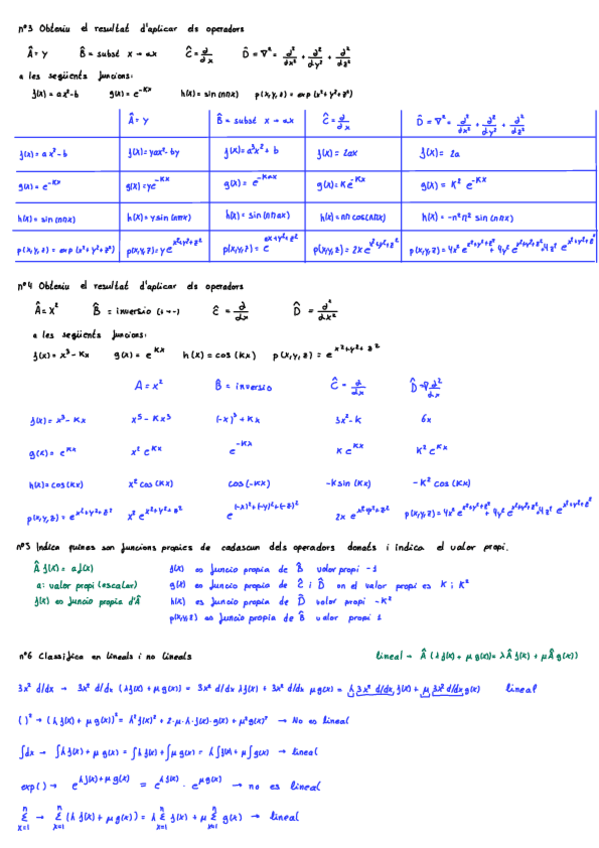 nº3 Obteniu el resultat d'aplicar els operadors
Â = y   B̂ = subst x → ax   Ĉ = d/dx   D̂ = ∇² = d²/dx² + d²/dy² + d²/dz²
a les següents funcions:
f(x) = ax²-b   g(x) = e^-Kx   h(x) = sin(nπx)   p(x,y,z) = exp(x²+y²+z²)
Â = y   B̂ = subst x → ax   Ĉ = d/dx   D̂ = ∇² = d²/dx² + d²/dy² + d²/dz²
f(x) = ax²-b   f(x) = yax²-by   f(x) = a³x² + b   f(x) = 2ax   f(x) = 2a
g(x) = e^-Kx   g(x) = ye^-Kx   g(x) = e^-Kax   g(x) = Ke^-Kx   g(x) = K² e^-Kx
h(x) = sin(nπx)   h(x) = y sin(nπx)   h(x) = sin(nπax)   h(x) = nπ cos(nπx)   h(x) = -n²π² sin(nπx)
p(x,y,z) = exp(x²+y²+z²)   p(x,y,z) = y e^x²+y²+z²   p(x,y,z) = e^ax+y²+z²   p(x,y,z) = 2x e^x²+y²+z²   p(x,y,z) = 4x² e^x²+y²+z² + 4y² e^x²+y²+z² + 4z² e^x²+y²+z²
nº4 Obteniu el resultat d'aplicar els operadors
Â = x²   B̂ = inversio (+→-)   Ĉ = d/dx   D̂ = d²/dx²
a les següents funcions:
f(x) = x³-Kx   g(x) = e^Kx   h(x) = cos(Kx)   p(x,y,z) = e^x²+y²+z²
A = x²   B = inversio   Ĉ = d/dx   D̂ = d²/dx
f(x) = x³-Kx   x⁵-Kx³   (-x)³+Kx   3x²-K   6x
g(x) = e^Kx   x² e^Kx   e^-Kx   K e^Kx   K² e^Kx
h(x) = cos(Kx)   x² cos(Kx)   cos(-Kx)   -K sin(Kx)   -K² cos(Kx)
p(x,y,z) = e^x²+y²+z²   x² e^x²+y²+z²   e^(-x)²+(-y)²+(-z)²   2x e^x²+y²+z²   p(x,y,z) = 4x² e^x²+y²+z² + 4y² e^x²+y²+z² + 4z² e^x²+y²+z²
nº5 Indica quines son funcions propies de cadascun dels operadors donats i indica el valor propi.
Â f(x) = a f(x)   f(x) es funcio propia de B̂ valor propi -1
a: valor propi (escalar)   g(x) es funcio propia de Ĉ i D̂ on el valor propi es K i K²
f(x) es funcio propia d'Â   h(x) es funcio propia de D̂ valor propi -K²
p(x,y,z) es funcio propia de B̂ valor propi 1
nº6 Classifica en lineals i no lineals   lineal → Â (λ f(x) + μ g(x)) = λ Â f(x) + μ Â g(x)
3x² d/dx → 3x² d/dx (λ f(x) + μ g(x)) = 3x² d/dx λ f(x) + 3x² d/dx μ g(x) = λ 3x² d/dx f(x) + μ 3x² d/dx g(x)   lineal
( )² → (λ f(x) + μ g(x))² = λ² f(x)² + 2·μ·λ·f(x)·g(x) + μ² g(x)² → No es lineal
∫dx → ∫λ f(x) + μ g(x) = ∫λ f(x) + ∫μ g(x) = λ ∫f(x) + μ ∫g(x) → lineal
exp( ) → e^λ f(x) + μ g(x) = e^λ f(x) · e^μ g(x) → no es lineal
Σ (n, x=1) → Σ (n, x=1) (λ f(x) + μ g(x)) = λ Σ (n, x=1) f(x) + μ Σ (n, x=1) g(x) → lineal